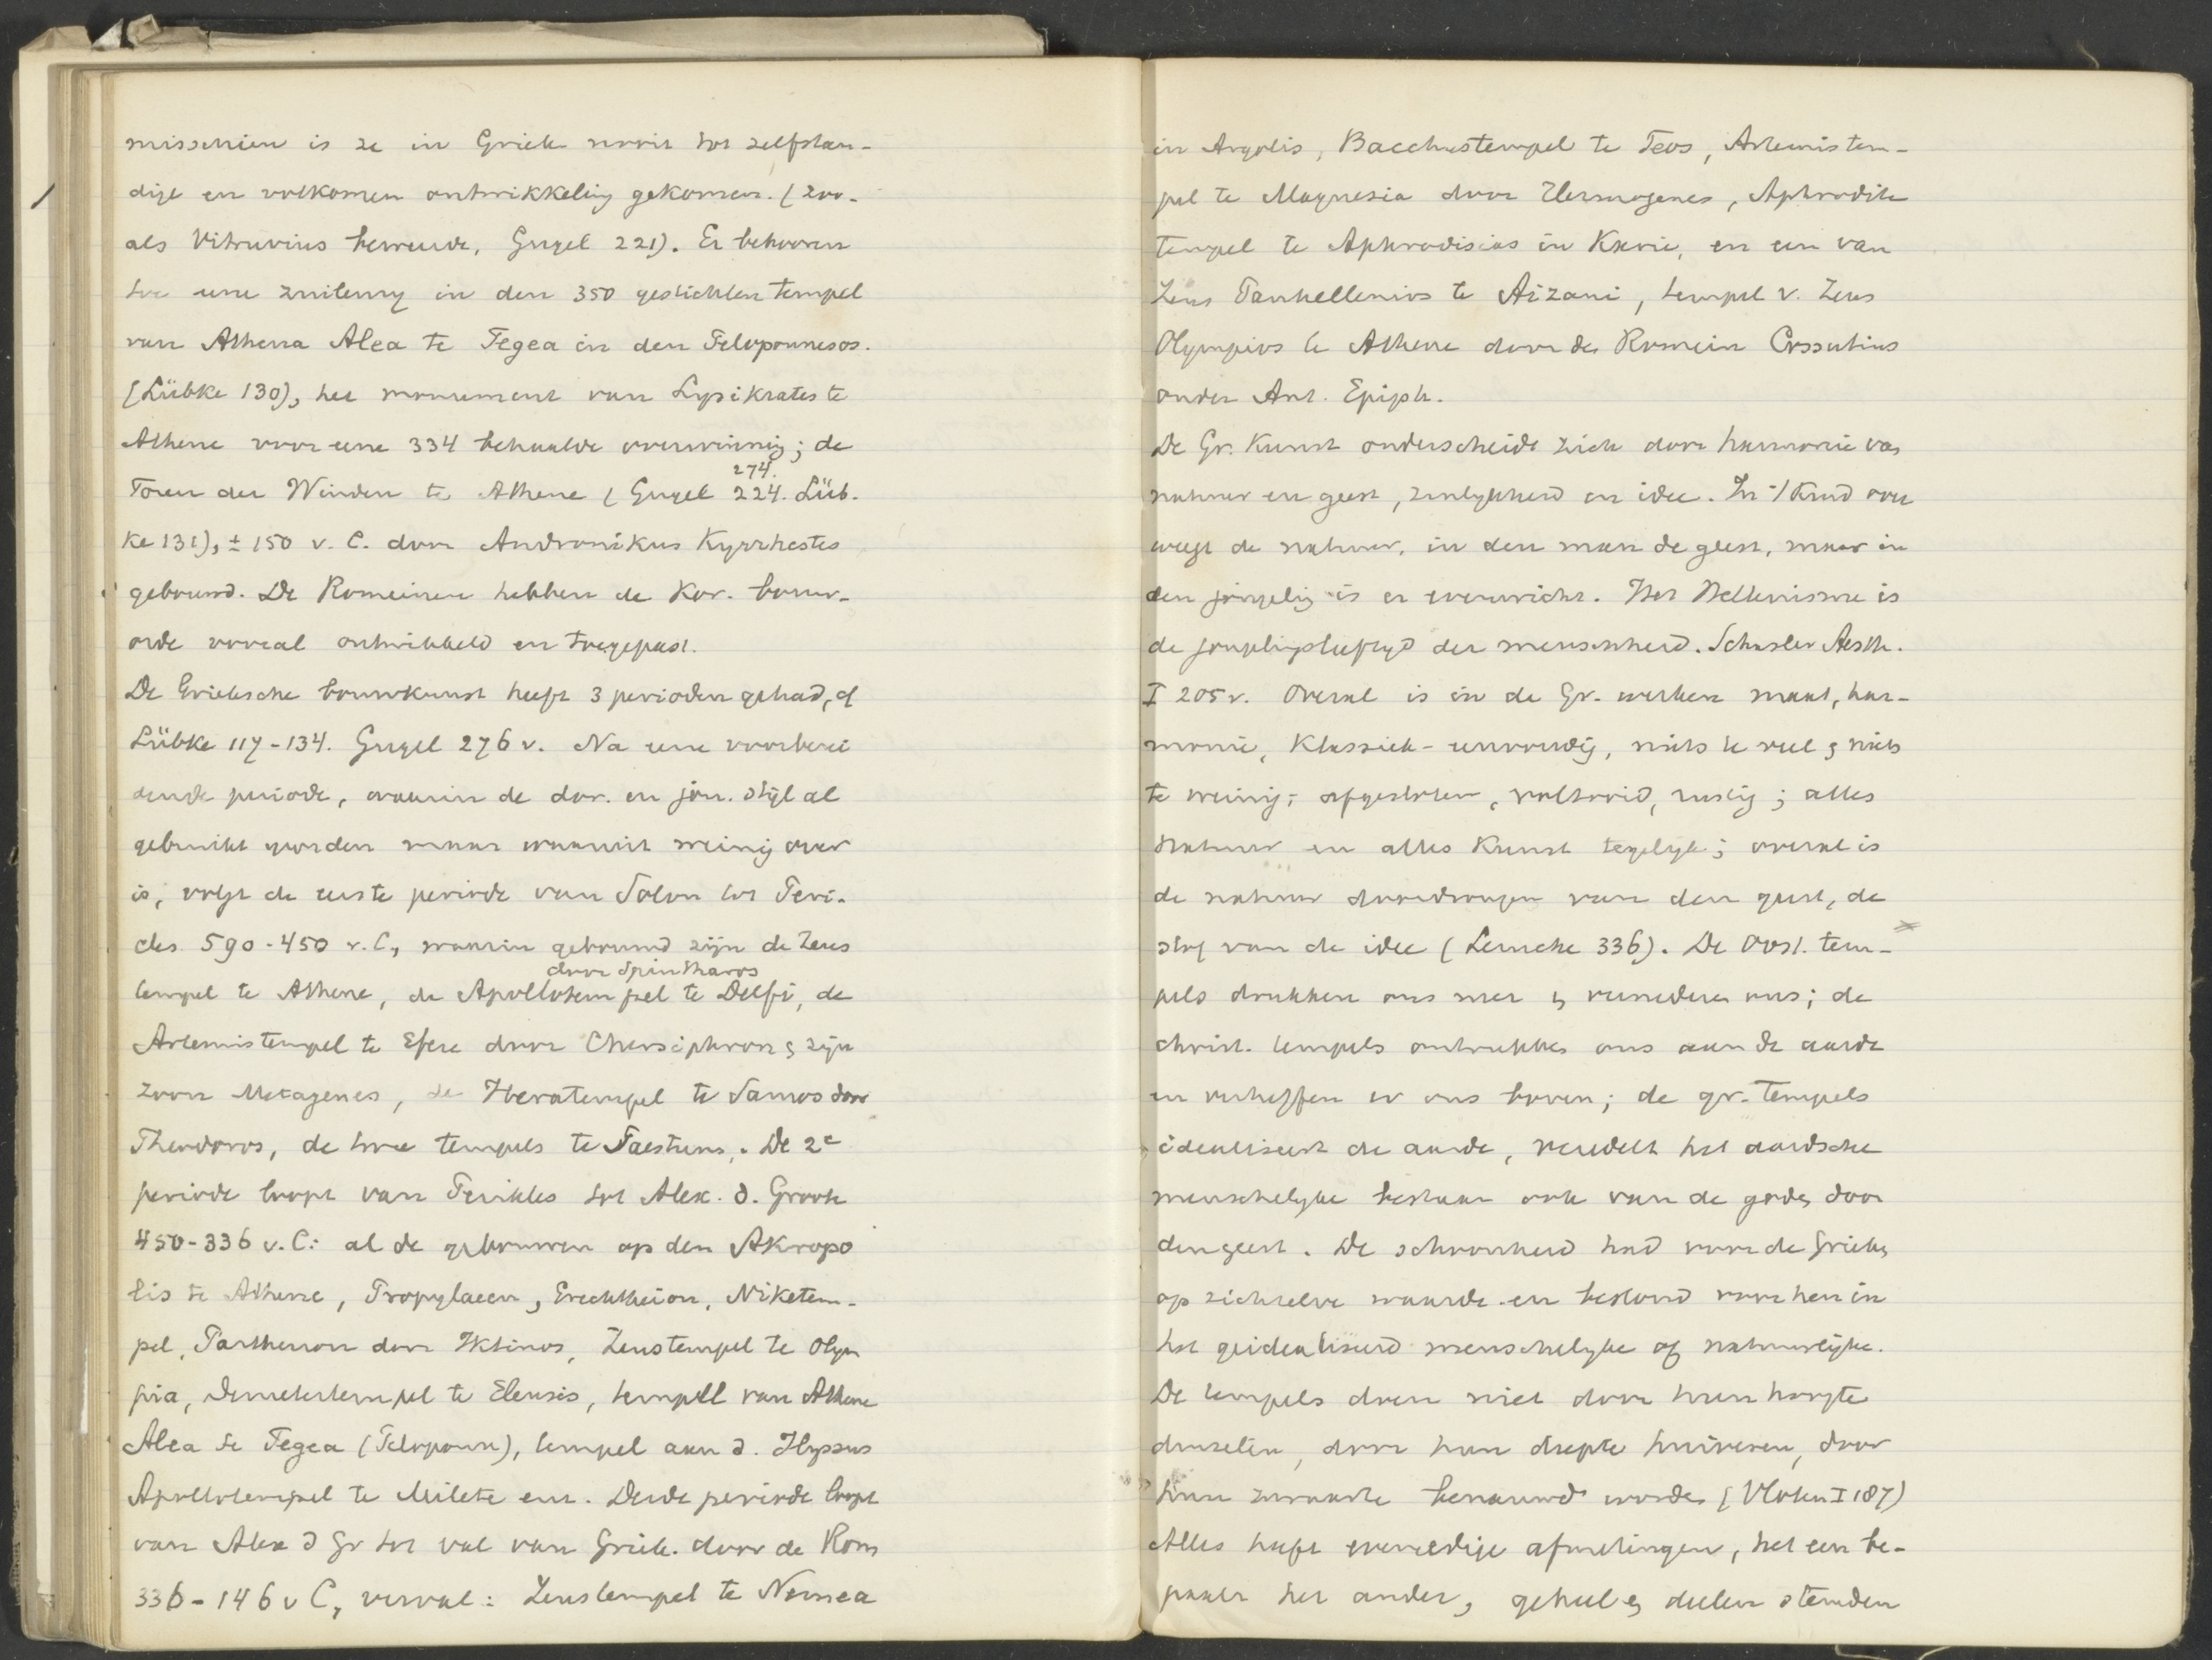 misschien is ze in Griek nooit tot zelfstan-
dige en volkomen ontwikkeling gekomen. (zoo-
als Vitruvius beweerde, Gugel 221). Er behooren
toe eene zuilenrij in den 350 gestichten tempel
van Athena Alea te Tegea in den Peloponnesos.
(Lübke 130), het monument van Lysikrates te
Athene voor eene 334 behaalde overwinning; de
274.
Toren der Winden te Athene (Gugel 224. Lüb-
ke 131), ± 150 v. C. door Andronikus Kyrrhestes
gebouwd. De Romeinen hebben de Kor. bouw-
orde vooral ontwikkeld en toegepast.
De Grieksche bouwkunst heeft 3 perioden gehad, cf
Lübke 117-134. Gugel 276 v. Na eene voorberei
dende periode, waarin de dor. en jon. stijl al
gebruikt worden maar waaruit weinig over
is, volgt de eerste periode van Solon tot Peri-
cles 590-450 v. C, waarin gebouwd zijn de Zeus
door Spintharos
tempel te Athene, de Apollotempel te Delfi, de
Artemistempel te Efeze door Chersiphron & zijn
zoon Metagenes, de Heratempel te Samos door
Theodoros, de twee tempels te Paestum. De 2e
periode loopt van Perikles tot Alex. d. Groote
450-336 v. C: al de gebouwen op den Akropo
lis te Athene, Propylaeen, Erechtheion, Niketem-
pel, Parthenon door Iktinos, Zeustempel te Olym
pia, Demetertempel te Eleusis, tempel van Athene
Alea te Tegea (Pelopponn), tempel aan d. Ilyssus
Apollotempel te Milete enz. Derde periode loopt
van Alex d Gr tot val van Griek. door de Rom
336-146 v C, verval: Zeustempel te Nemea
in Argolis, Bacchustempel te Teos, Artemistem-
pel te Magnesia door Hermogenes, Aphrodite
tempel te Aphrodisias in Karie, en een van
Zeus Panhellenios te Aizani, tempel v. Zeus
Olympios te Athene door den Romein Cossutius
onder Ant. Epiph.
De Gr. Kunst onderscheidt zich door harmonie van
natuur en geest, zinlykheid en idee. In 't kind over
weegt de natuur, in den man de geest, maar in
den jongeling is er evenwicht. Het Hellenisme is
de jongelingsleeftyd der menschheid. Schasler Aesth.
I 205 v. Overal is in de Gr. werken maat, har-
monie, Klassiek-eenvoudig, niets te veel & niets
te weinig; afgesloten, voltooid, rustig; alles
natuur en alles Kunst tegelyk; overal is
de natuur doordrongen van den geest, de
stof van de idee (Lemcke 336). De Oost. tem-
pels drukken ons neer & vernederen ons; de
christ. tempels ontrukken ons aan de aarde
en verheffen er ons boven; de gr. tempels
idealiseert de aarde, veredelt het aardsche
menschelyke bestaan ook van de goden door
den geest. De schoonheid had voor de Grieken
op zichzelve waarde en bestond voor hen in
het geidealiseerd menschelyke of natuurlijke.
De tempels doen niet door hun hoogte
duizelen, door hun diepte huiveren, door
hun zwaarte benauwd worden (Vloten I 187)
Alles heeft evenredige afmetingen, het een be-
paalt het ander, geheel & deelen stemden